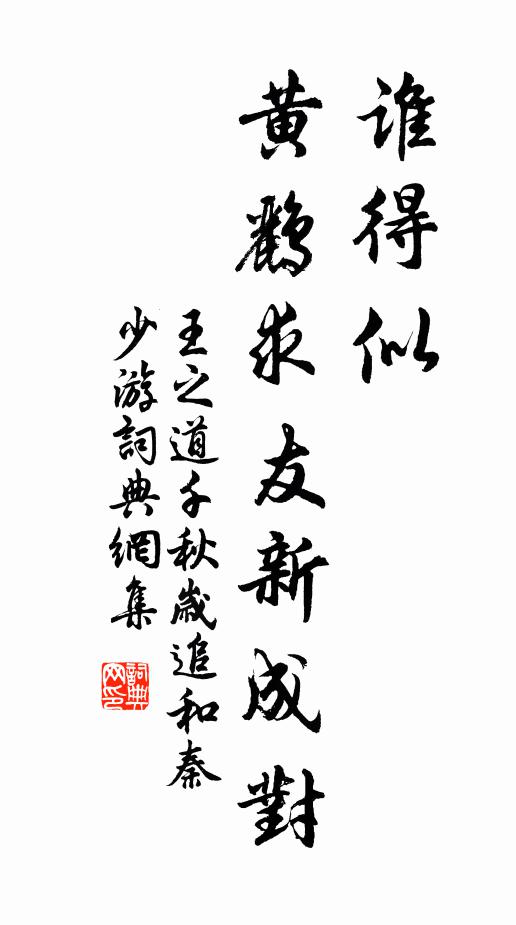 誰得似
黃鸝求友新成對
王之道千秋歲追和秦
少游詞典網集
詞典
网印